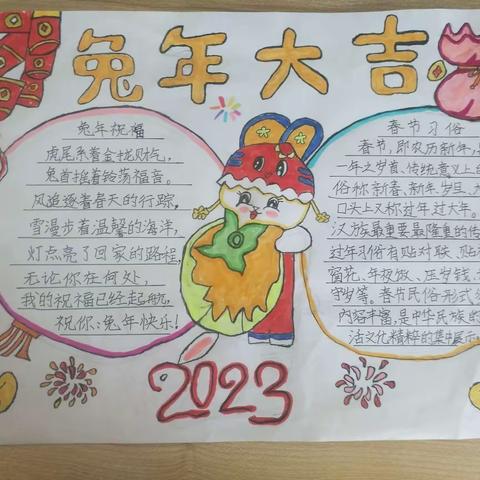 兔年大吉
兔年祝福
虎尾系着金拢财气，
兔首摇着铃荡福音。
风追逐着春天的行踪，
雪漫步着温馨的海洋，
灯点亮了回家的路程，
无论你在何处，
我的祝福已经起航，
祝你、兔年快乐！
春节习俗
春节，即农历新年，是
一年之岁首、传统意义上的
俗称新春、新年、岁旦、
口头上又称过年、过大年。
汉族最重要最隆重的传
过年习俗有贴对联、贴
窗花、年夜饭、压岁钱、
守岁等。春节民俗形式多
内容丰富，是中华民族的
活文化精粹的集中展示
2023